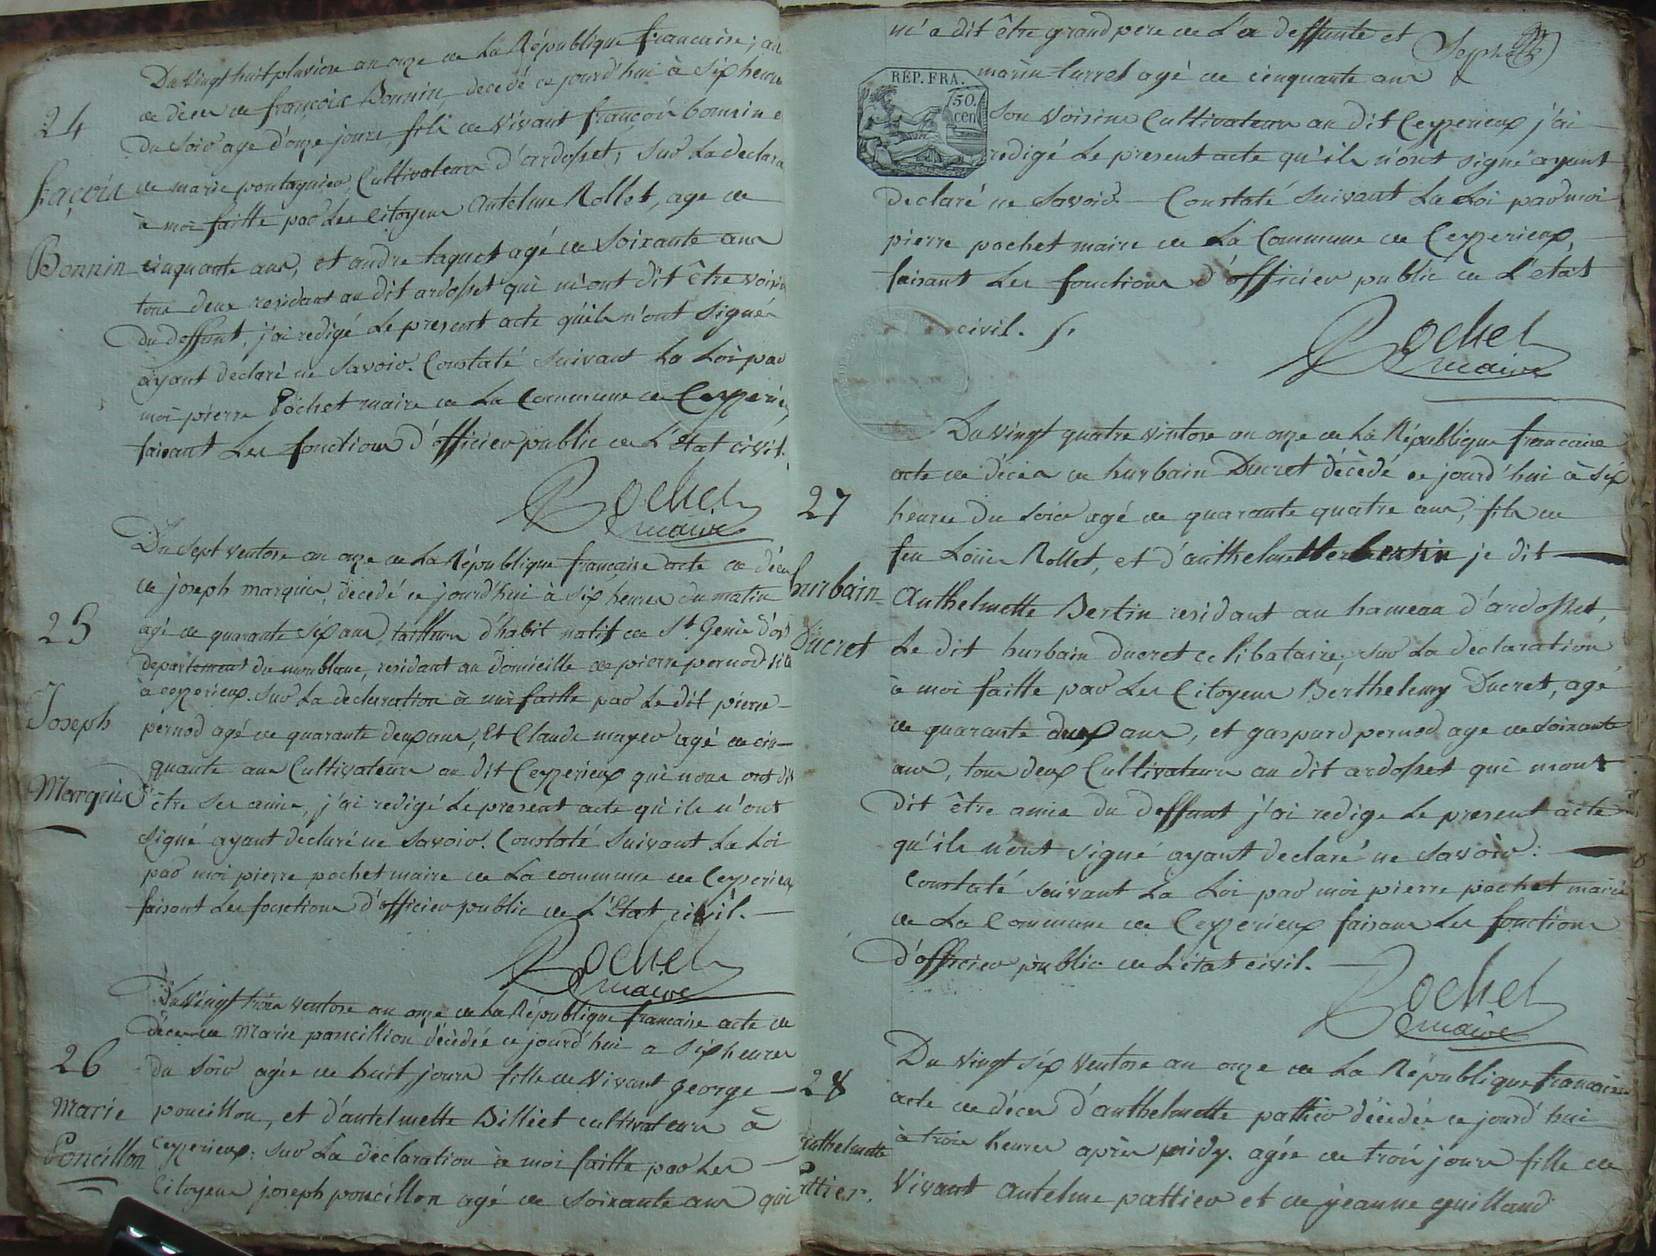 Du vingt huit pluviose an onze de La République francaise; ac
24
de décès de françois Bonnin decedé ce jourd'hui à six heures
Du soir age d'onze jours, fils de vivant françois bonnin e
façois
de marie pontagnier Cultivateurs d'ardosset, sur La declara
à moi faitte par Les citoyens Antelme Rollet, age de
Bonnin
cinquante ans, et andre taquet agé de soixante ans
tous deux residant au dit ardosset qui m'ont dit être voisin
du deffunt, j'ai redigé Le present acte qu'ils n'ont signé
ayant declaré ne savoir. Constaté suivant La Loi par
moi pierre Pochet maire de La Commune de Ceyzerie
faisant Les fonctions d'officier public de L'Etat civil.
Pochet
maire
Du sept ventose an onze de La République française acte de déce
de joseph marquis, décedé ce jourd'hui à six heures du matin
25
agé de quarante six ans, tailleur d'habit natif de St Genis d'os
departement du mont blanc, residant au Domicille de pierre pernod
à ceyzerieux. sur La declaration à moi faitte par Le dit pierre
Joseph
pernod agé de quarante deux ans, Et Claude mayer agé de cin-
quante ans Cultivateurs au dit Ceyzerieux qui nous ont dit
Marquis
être ses amis, j'ai redigé Le present acte qu'ils n'ont
signé ayant declaré ne savoir. Constaté suivant La Loi
par moi pierre pochet maire de La commune de Ceyzerieux
faisant Les fonctions d'officier public de L'Etat civil.
Pochet
maire
Du vingt trois ventose an onze de La République francaise acte de
décès de Marie poncillion décédée ce jourd'hui a six heures
26
du soir agée de huit jours fille de vivant george
Marie
poncillon, et d'antelmette Billiet cultivateurs à
Poncillon
Ceyzerieux: sur La déclaration à moi faitte par Les
Citoyens joseph poncillon agé de soixante ans qui
m'a dit être grand pere de La deffunte et
marin turrel agé de cinquante ans
REP. FRA.
50
cen
son voisin Cultivateurs au dit Ceyzerieux j'ai
redigé Le present acte qu'ils n'ont signé ayant
declaré ne savoir. Constaté suivant La Loi par moi
pierre pochet maire de La Commune de Ceyzerieux,
faisant Les fonctions d'officier public de L'etat
civil.
Pochet
maire
Du vingt quatre ventose an onze de La République francaise
acte de décès de hurbain Ducret décédé ce jourd'hui à six
27
heures du soir agé de quarante quatre ans, fils de
feu Louis Rollet, et d'anthelmette bertin je dit
hurbain
Anthelmette Bertin residant au hameau d'ardosset,
Ducret
Le dit hurbain ducret celibataire, sur La declaration
à moi faitte par Les Citoyens Berthelemy Ducret, agé
de quarante deux ans, et gaspard pernod age de soixante
ans, tous deux Cultivateurs au dit ardosset qui mont
dit être amis du deffunt j'ai redige Le present acte
qu'ils n'ont signé ayant declaré ne savoir:
Constaté suivant La Loi par moi pierre pochet maire
de La Commune de Ceyzerieux faisans Les fonctions
d'officier public de L'état civil.
Pochet
maire
Du vingt six ventose an onze de La République francaise
28
acte de décès d'anthelmette pattier décédée ce jourd'hui
anthelmette
à trois heures après midy. agée de trois jours fille de
Pattier.
Vivant antelme pattier et de jeanne guilland